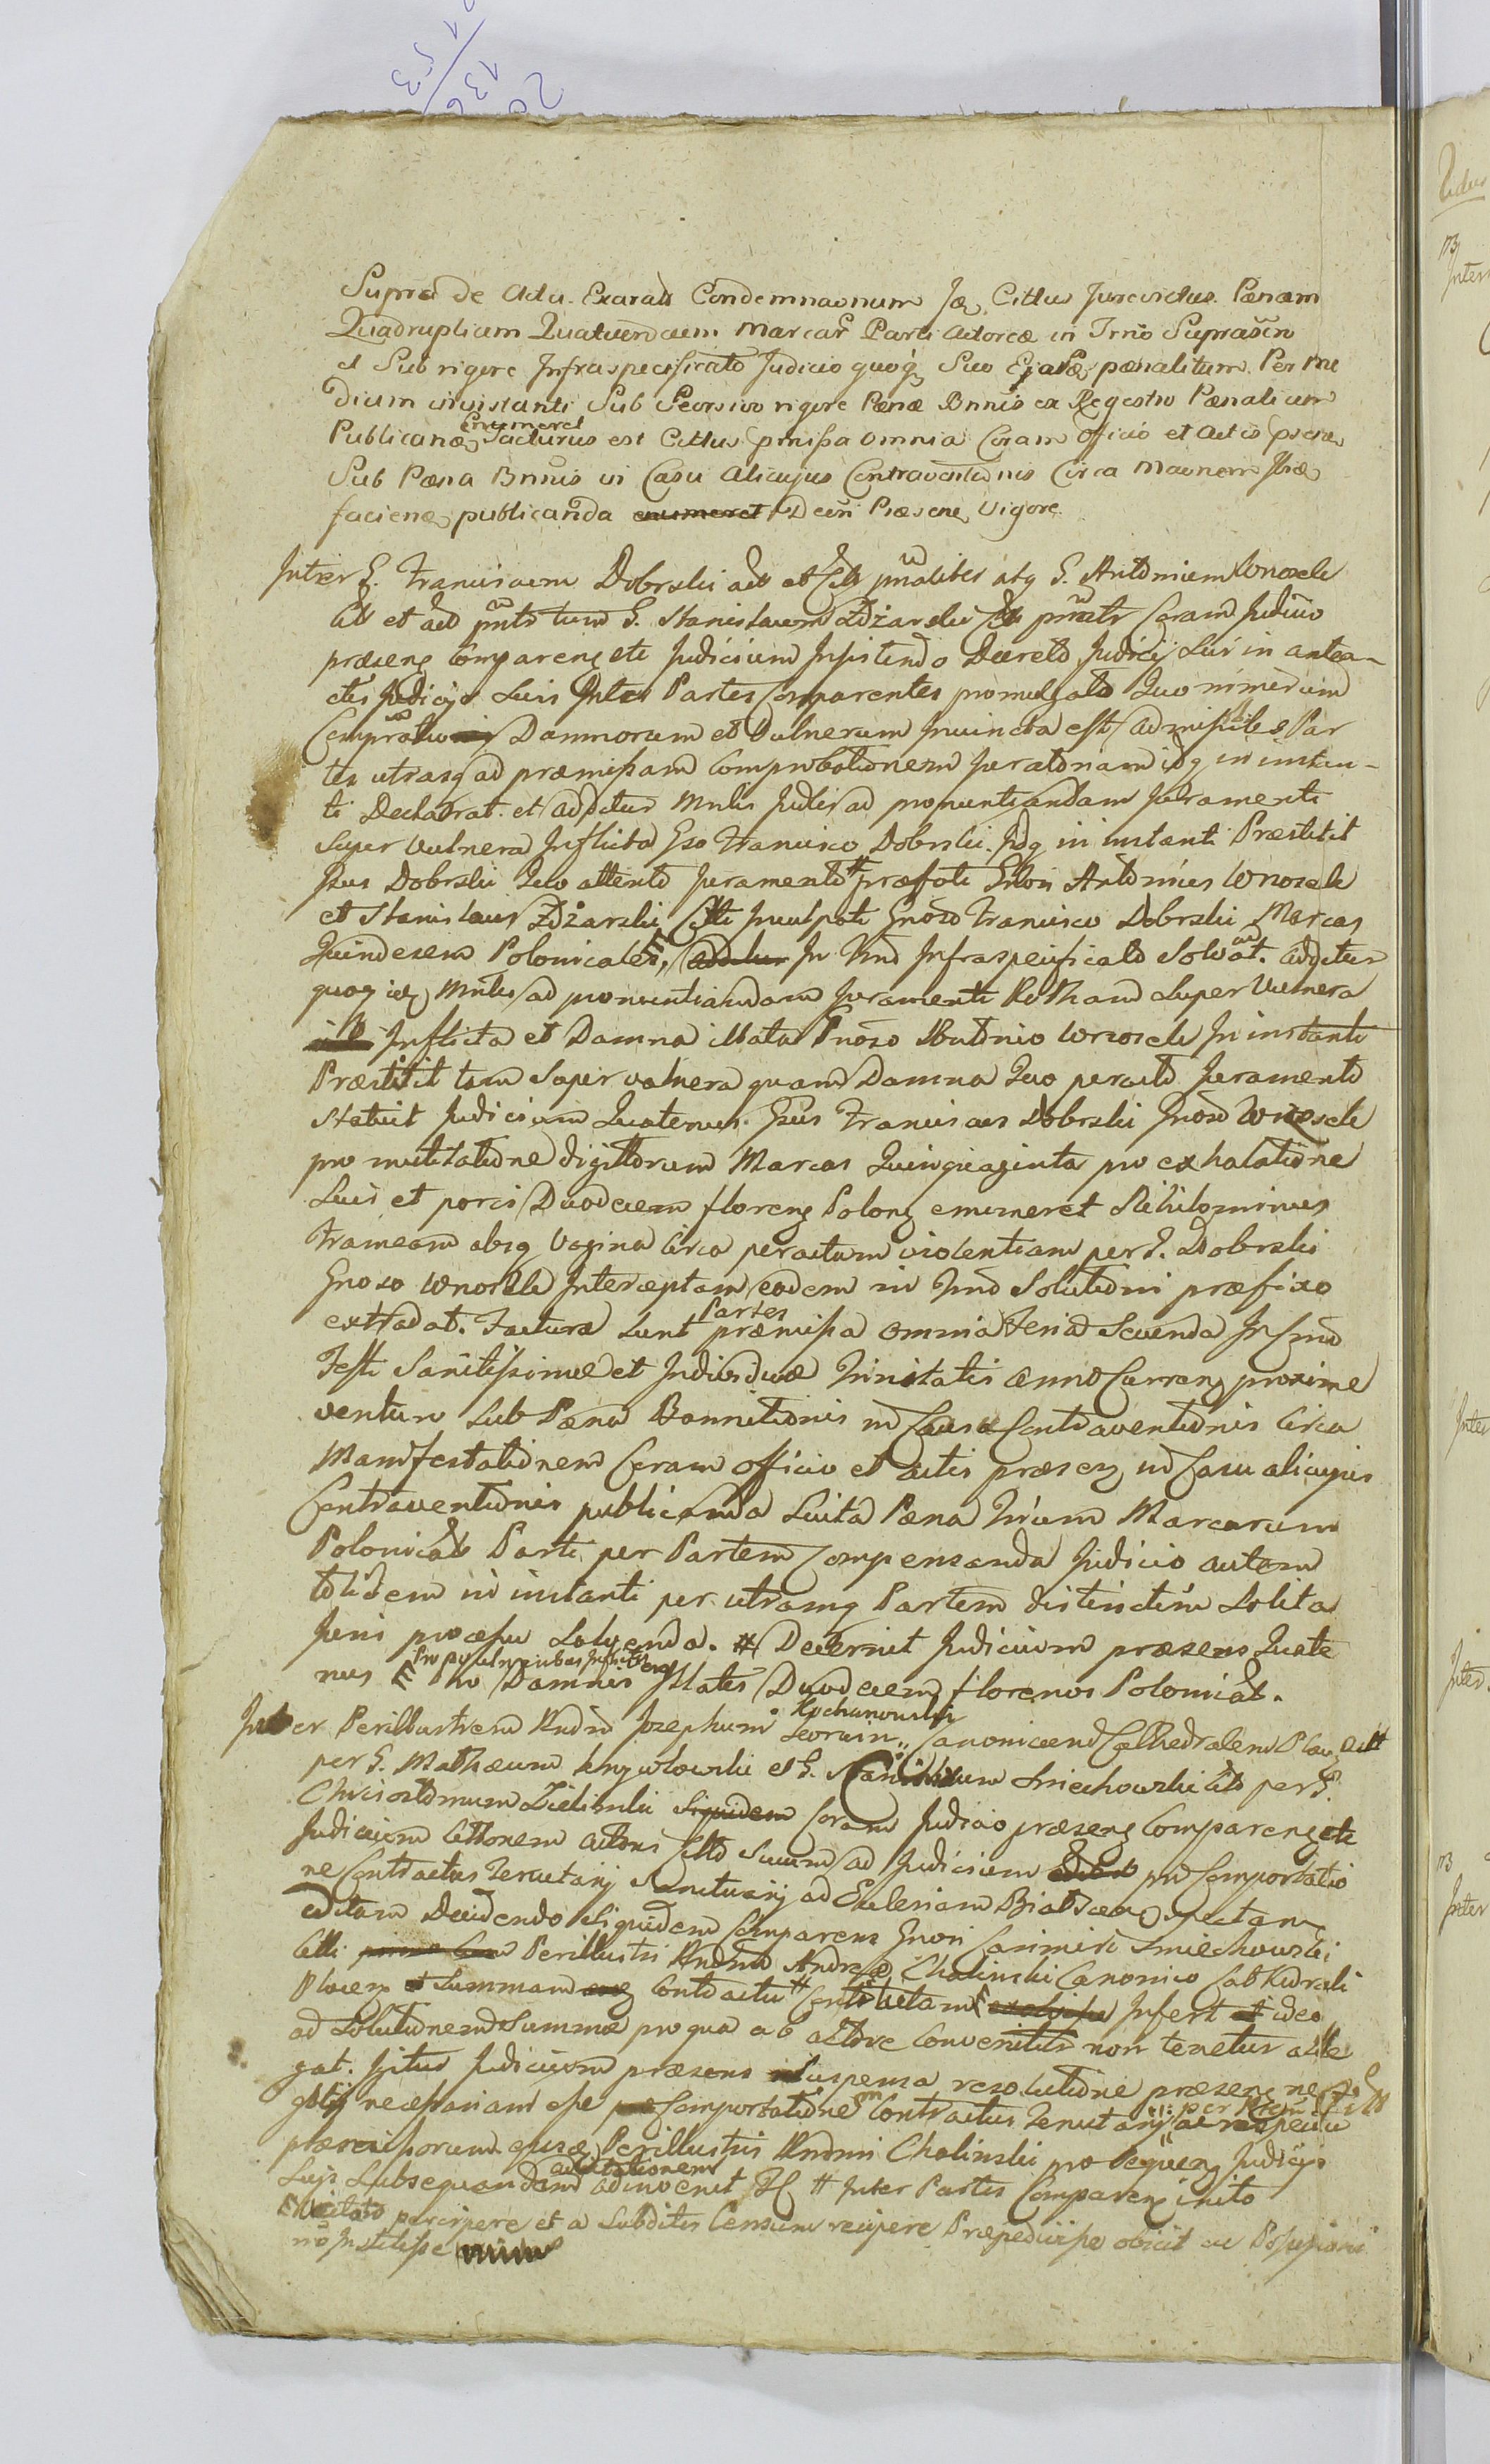 Supra de Actu Exarato Condemnaonum Jæ Cittus Jurevictus. Pænam
Quadruplicem Quatuordecim Marcar Parti Actoreæ in Trno Suprascrip
et Sub rigore Infraspecificato Judicio quoq Suo pænalitum Per me
dium instanti Sub Seorsivo rigore Pænæ Bnnis ex Regestro Pænalium
Enumeret
Publicanæ, Facturus est Cittus pmissa omnia Coram Officio et Actis præsæ
Sub Pæna Bnnis in Casu alicujus Contraventionis Circa Maonem Jtæ
facienæ publicanda enumeret Decri Præsene Vigore
Inter G. Franciscum Dobrski act et Citt pnaliter atq G. Antonium Wnosek
Citt et act pnto tum G. Stanislaum Zdżarski Citt pnatr Coram Judicio
præsenz Comparenz etc Judicium Insistendo Decreto Judicij Sui in antea
ctis Judicijs Suis Inter Partes Comparentes promulgato Quo nimirum
Comprobatio Damnorum et Vulnerum Injuncta est admissiles Par
tes utrasq ad præmissam Comprobationem juratoriam idq in instan-
ti Declarat. et additur Mnlis Judis ad pronuntiandam Juramenti
Super Vulnera Inflicta Gso Francisco Dobrski. Idq in instanti Præstitit
Gsus Dobrski Quo attento Juramento # præfati Gnosi Antonius Wnosek
et Stanislaus Zdżarski Citti Inculpati Gnoso Francisco Dobrski Marcas
Quindecem Polonicales, addutur In Trno Infraspecificato Solvat. additur
quoq idq Mnlis ad pronuntiandam Juramenti Rotham Super Vulnera
Inflicta et Damna illata Gnoso Antonio Wnosek In instanti
Præstitit tam Super vulnera quam Damna Quo peracto Juramento
Statuit Judicium Quatenus. Gsus Franciscus Dobrski Gnoso Wnosek
pro mutilatione digittorum Marcas Quinquaginta pro exhalatione
Suis et porci Duodecem florenz Polonz enumeret Nihilominus
Frameam absq Vagina Circa peractam violentiam per G. Dobrski
Gnoso Wnosek Interceptam eodem in Trno Solutioni præfixo
Partes
extradat. Facturæ sunt præmissa omnia Feria Secunda In Crno
Festi Sanctissimæ et Individuæ Trinitatis anno Currenz proxime
venturo Sub Pæna Bannitionis in Causa Contraventionis Circa
Manifestationem Coram officio et actis præsenz in Casu alicujus
Contraventionis publicanda Luita Pæna Trium Marcarum
Polonicalt Parti per Partem Compensanda Judicio autem
totidem in instanti per utramq Partem distinctim Solita
Juris processu Solvenda. # Decernit Judicium præsens Quate
Pro vulneribus Inflictis
nus Pro Damnis Illatis Duodecem florenos Polonicat.
Kochanowski
Inter Perillustrem Rndm Josephum Korwin,, Canonicum Cathedralem Ploc, Actt
per G. Mathæum Krzywkowski et G. Casimirum Smiechowski Citt per G.
Chrisostomum Zielinski Siquidem Coram Judicio præsenz Comparenz etc
Judicium Cittonem Actoris Citto Suum ad Judicium pro Comportatio
ne Contractus Tenutarij Sanctuarij ad Eclesiam spectan
editam Decidendo Siquidem Comparens Gnosi Casimiri Smiechowski
Citti Perillustri Rndmo Andreæ Cholinski Canonico Cathedrali
Plocenz Summam Contractu # Contentam Infert ideo
ad Solutionem Summæ pro qua ab actore Convenitur non tenetur alle
gat. Igitur Judicium præsens Suspensa resolutione præsenz ne
gotij necessariam esse Comportationem Contractus Tenutarij ac respectu
præscriptorum ejusæ Perillustris Rndmi Cholinski pro Sequenz Judicijs
acceptationem
Sujs Subsequendam adinvenit # Inter Partes Comparenz inito
percipere et a Subditis Censum recipere Præpedivisse obicit ac Possessioni
no Instetisse